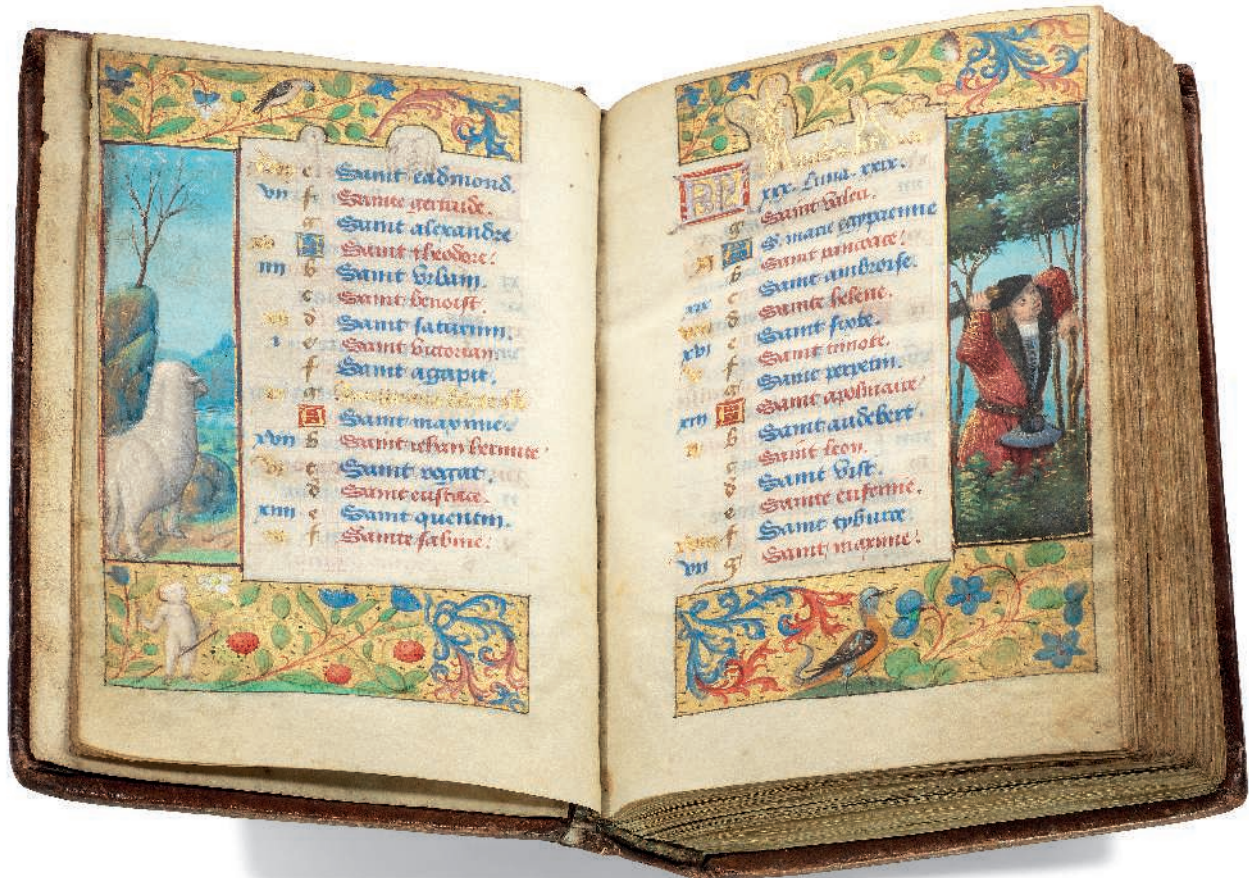 e Saint eadmond.
vii f Sainte gertrude.
g Saint alexandre
A Saint theodore.
iiii b Saint Urbain.
c Saint benoist.
d Saint saturnin.
i e Saint victorian
f Saint agapit.
g
A Saint maxime.
xvii b Saint iehan hermite
c Saint rogat.
d Saint eustace.
xiiii e Saint quentin.
f Sainte sabine.
xxx. Luna. xxix.
g Saint valeri.
A S. marie egypcienne
b Saint pancrace.
xix c Saint ambroise.
d Sainte helene.
xvi e Saint sixte.
f Saint timote.
g Saint perpetin.
xiii A Saint apolinaire
b Saint audebert.
c Saint leon.
d Saint vist.
e Sainte eufemie.
f Saint tyburce
vii g Saint maxime.